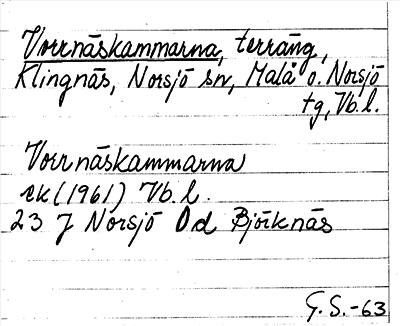 Vorrnäskammarna, terräng,
Klingnäs, Norsjö sn, Malå o. Norsjö
tg, Vb.l.
Vorrnäskammarna
ek (1961) Vb. l.
23 J Norsjö 0d Björknäs
G. S. -63